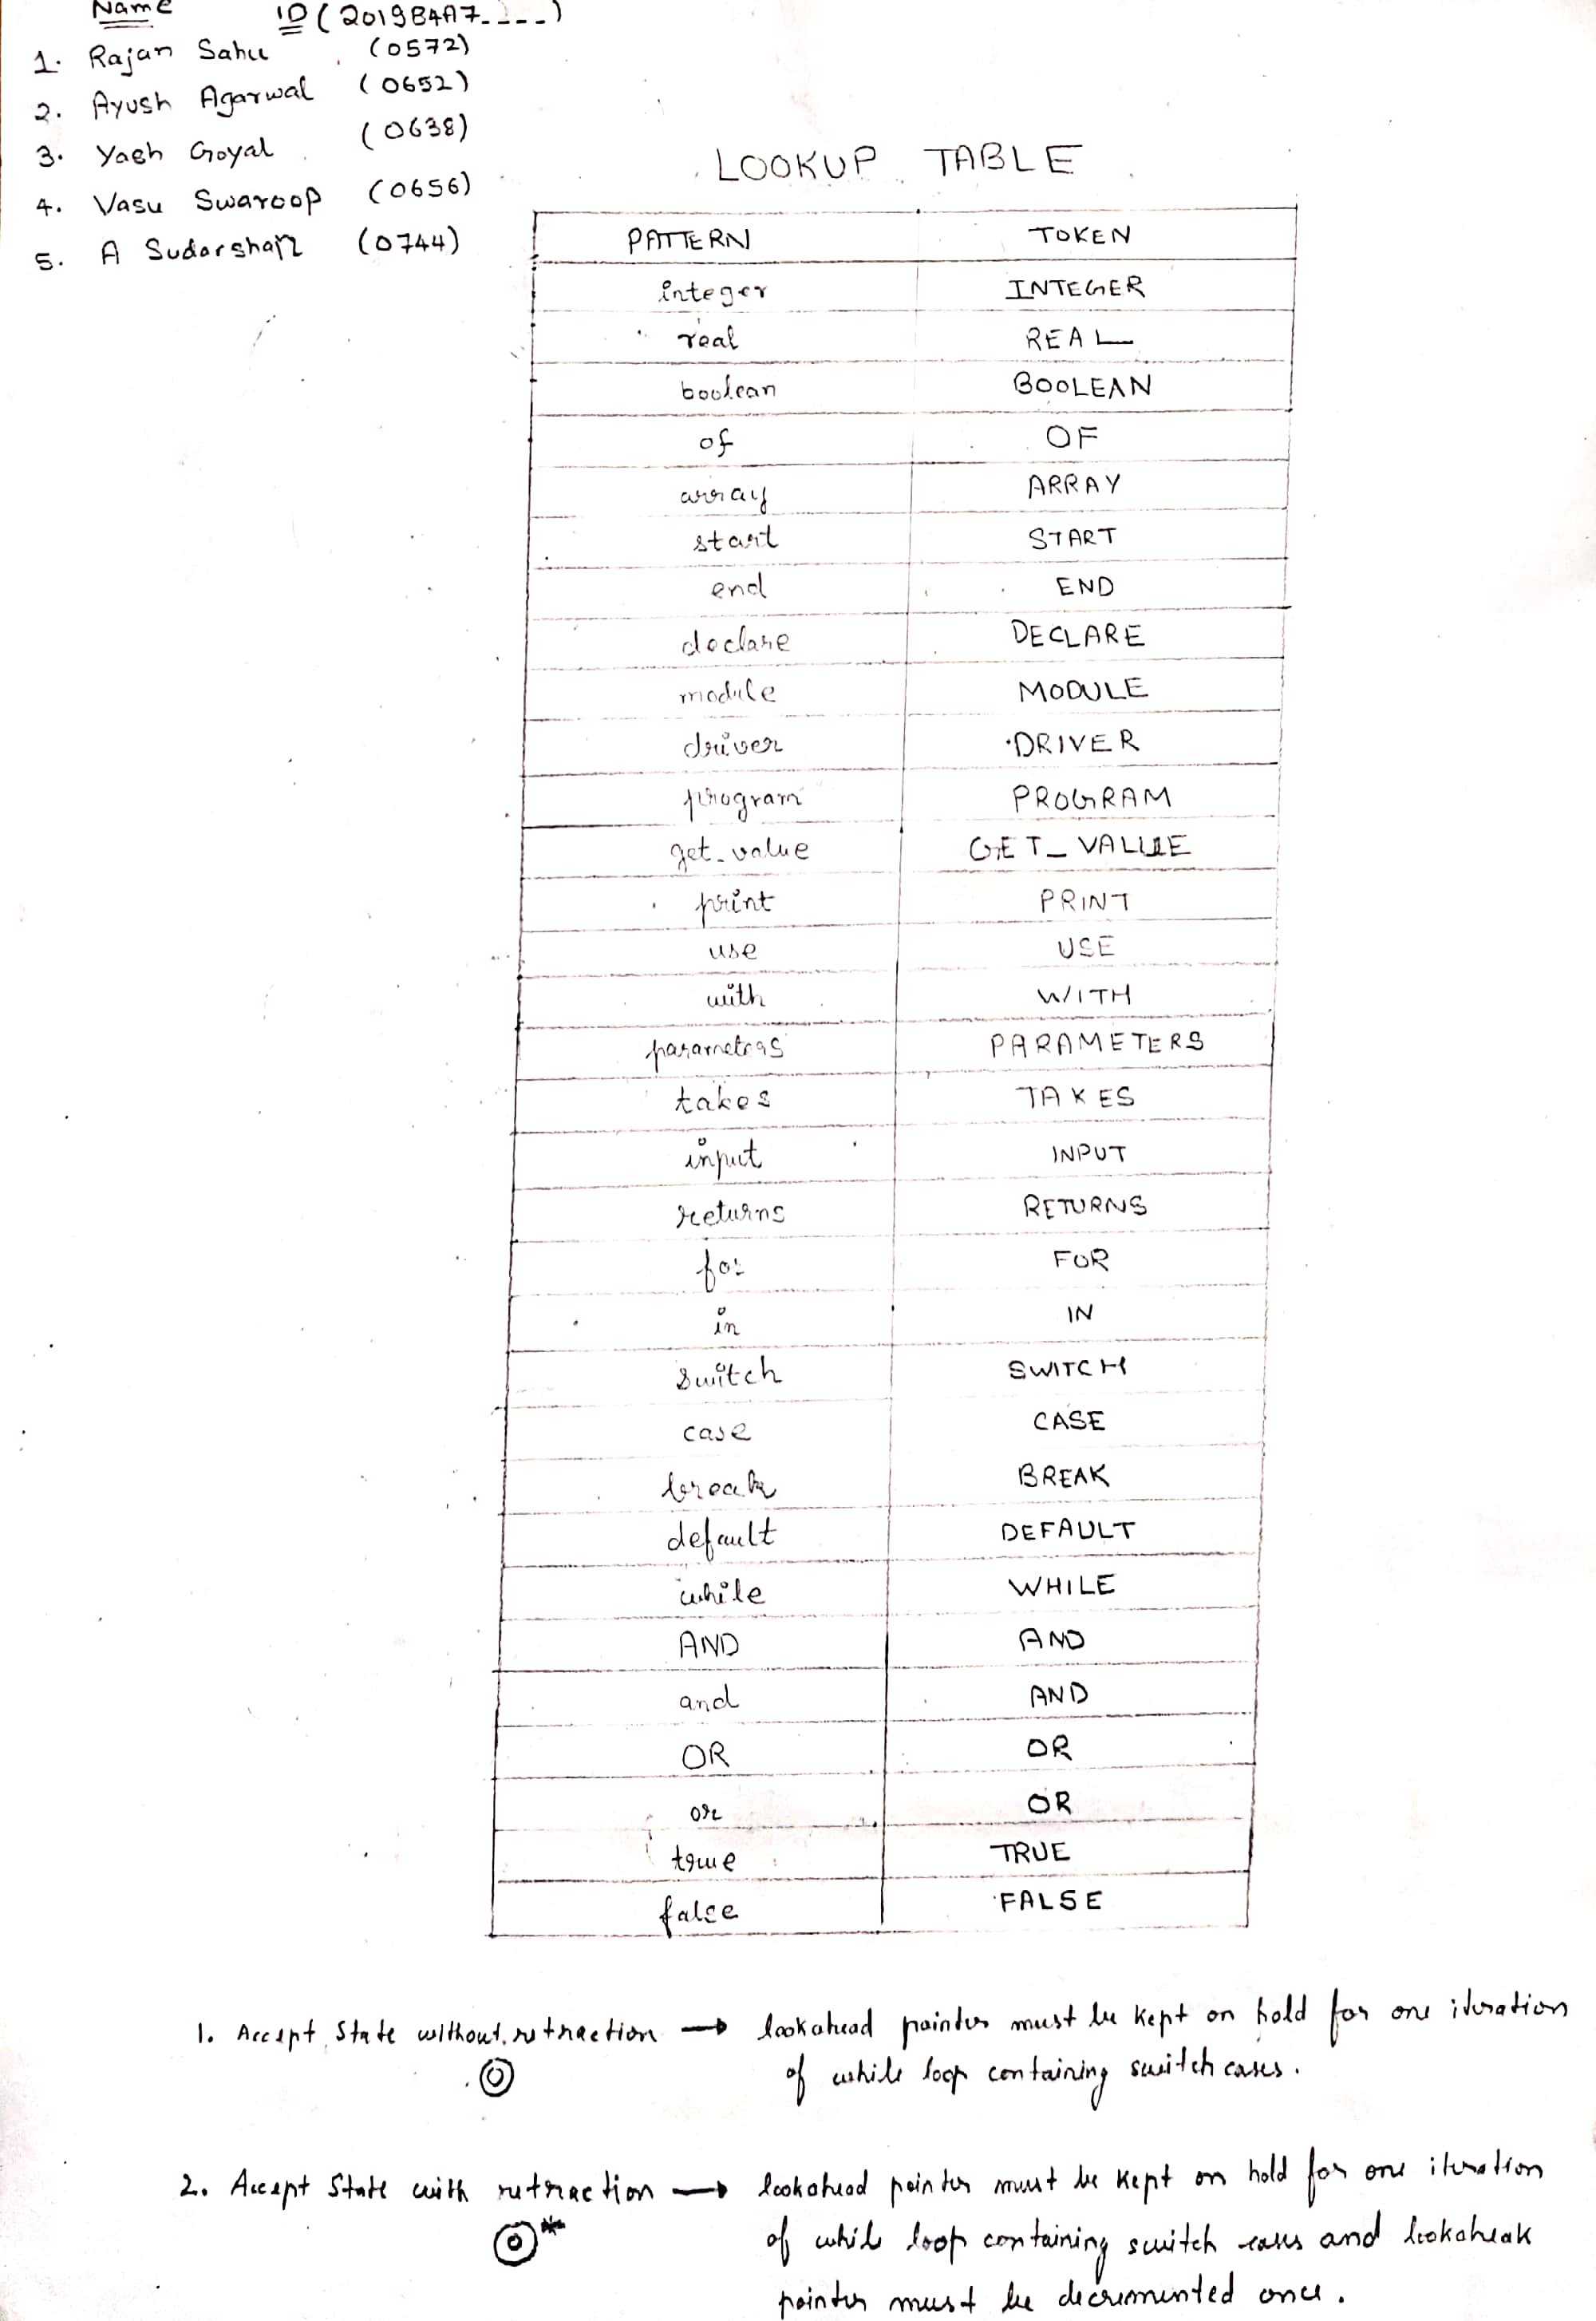 Name ID (2019B4A7----)
1. Rajan Sahu (0572)
2. Ayush Agarwal (0652)
3. Yash Goyal (0638)
4. Vasu Swaroop (0656)
5. A Sudarshan (0744)
LOOKUP TABLE
PATTERN TOKEN
integer INTEGER
real REAL
boolean BOOLEAN
of OF
array ARRAY
start START
end END
declare DECLARE
module MODULE
driver DRIVER
program PROGRAM
get_value GET_VALUE
print PRINT
use USE
with WITH
parameters PARAMETERS
takes TAKES
input INPUT
returns RETURNS
for FOR
in IN
switch SWITCH
case CASE
break BREAK
default DEFAULT
while WHILE
AND AND
and AND
OR OR
or OR
true TRUE
false FALSE
1. Accept State without retraction → lookahead pointer must be kept on hold for one iteration
of while loop containing switch cases.
2. Accept State with retraction → lookahead pointer must be kept on hold for one iteration
*
of while loop containing switch cases and lookaheak
pointer must be decremented once.